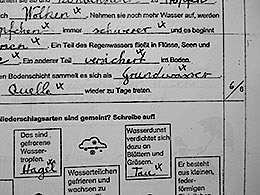 Wolken. Nehmen sie noch mehr Wasser auf, werden
immer schwerer und es beginnt
. Ein Teil des Regenwassers fließt in Flüsse, Seen und
Ein anderer Teil versichert im Boden.
Bodenschicht sammelt es sich als Grundwasser
Quelle wieder zu Tage treten.
6/6
Niederschlagsarten sind gemeint? Schreibe auf!
Das sind
gefrorene
Wasser-
tropfen.
Hagel
Wasserteilchen
gefrieren und
wachsen zu
Wasserdunst
verdichtet sich
dazu an
Blättern und
Gräsern.
Tau
Er besteht
aus kleinen,
feder-
förmigen